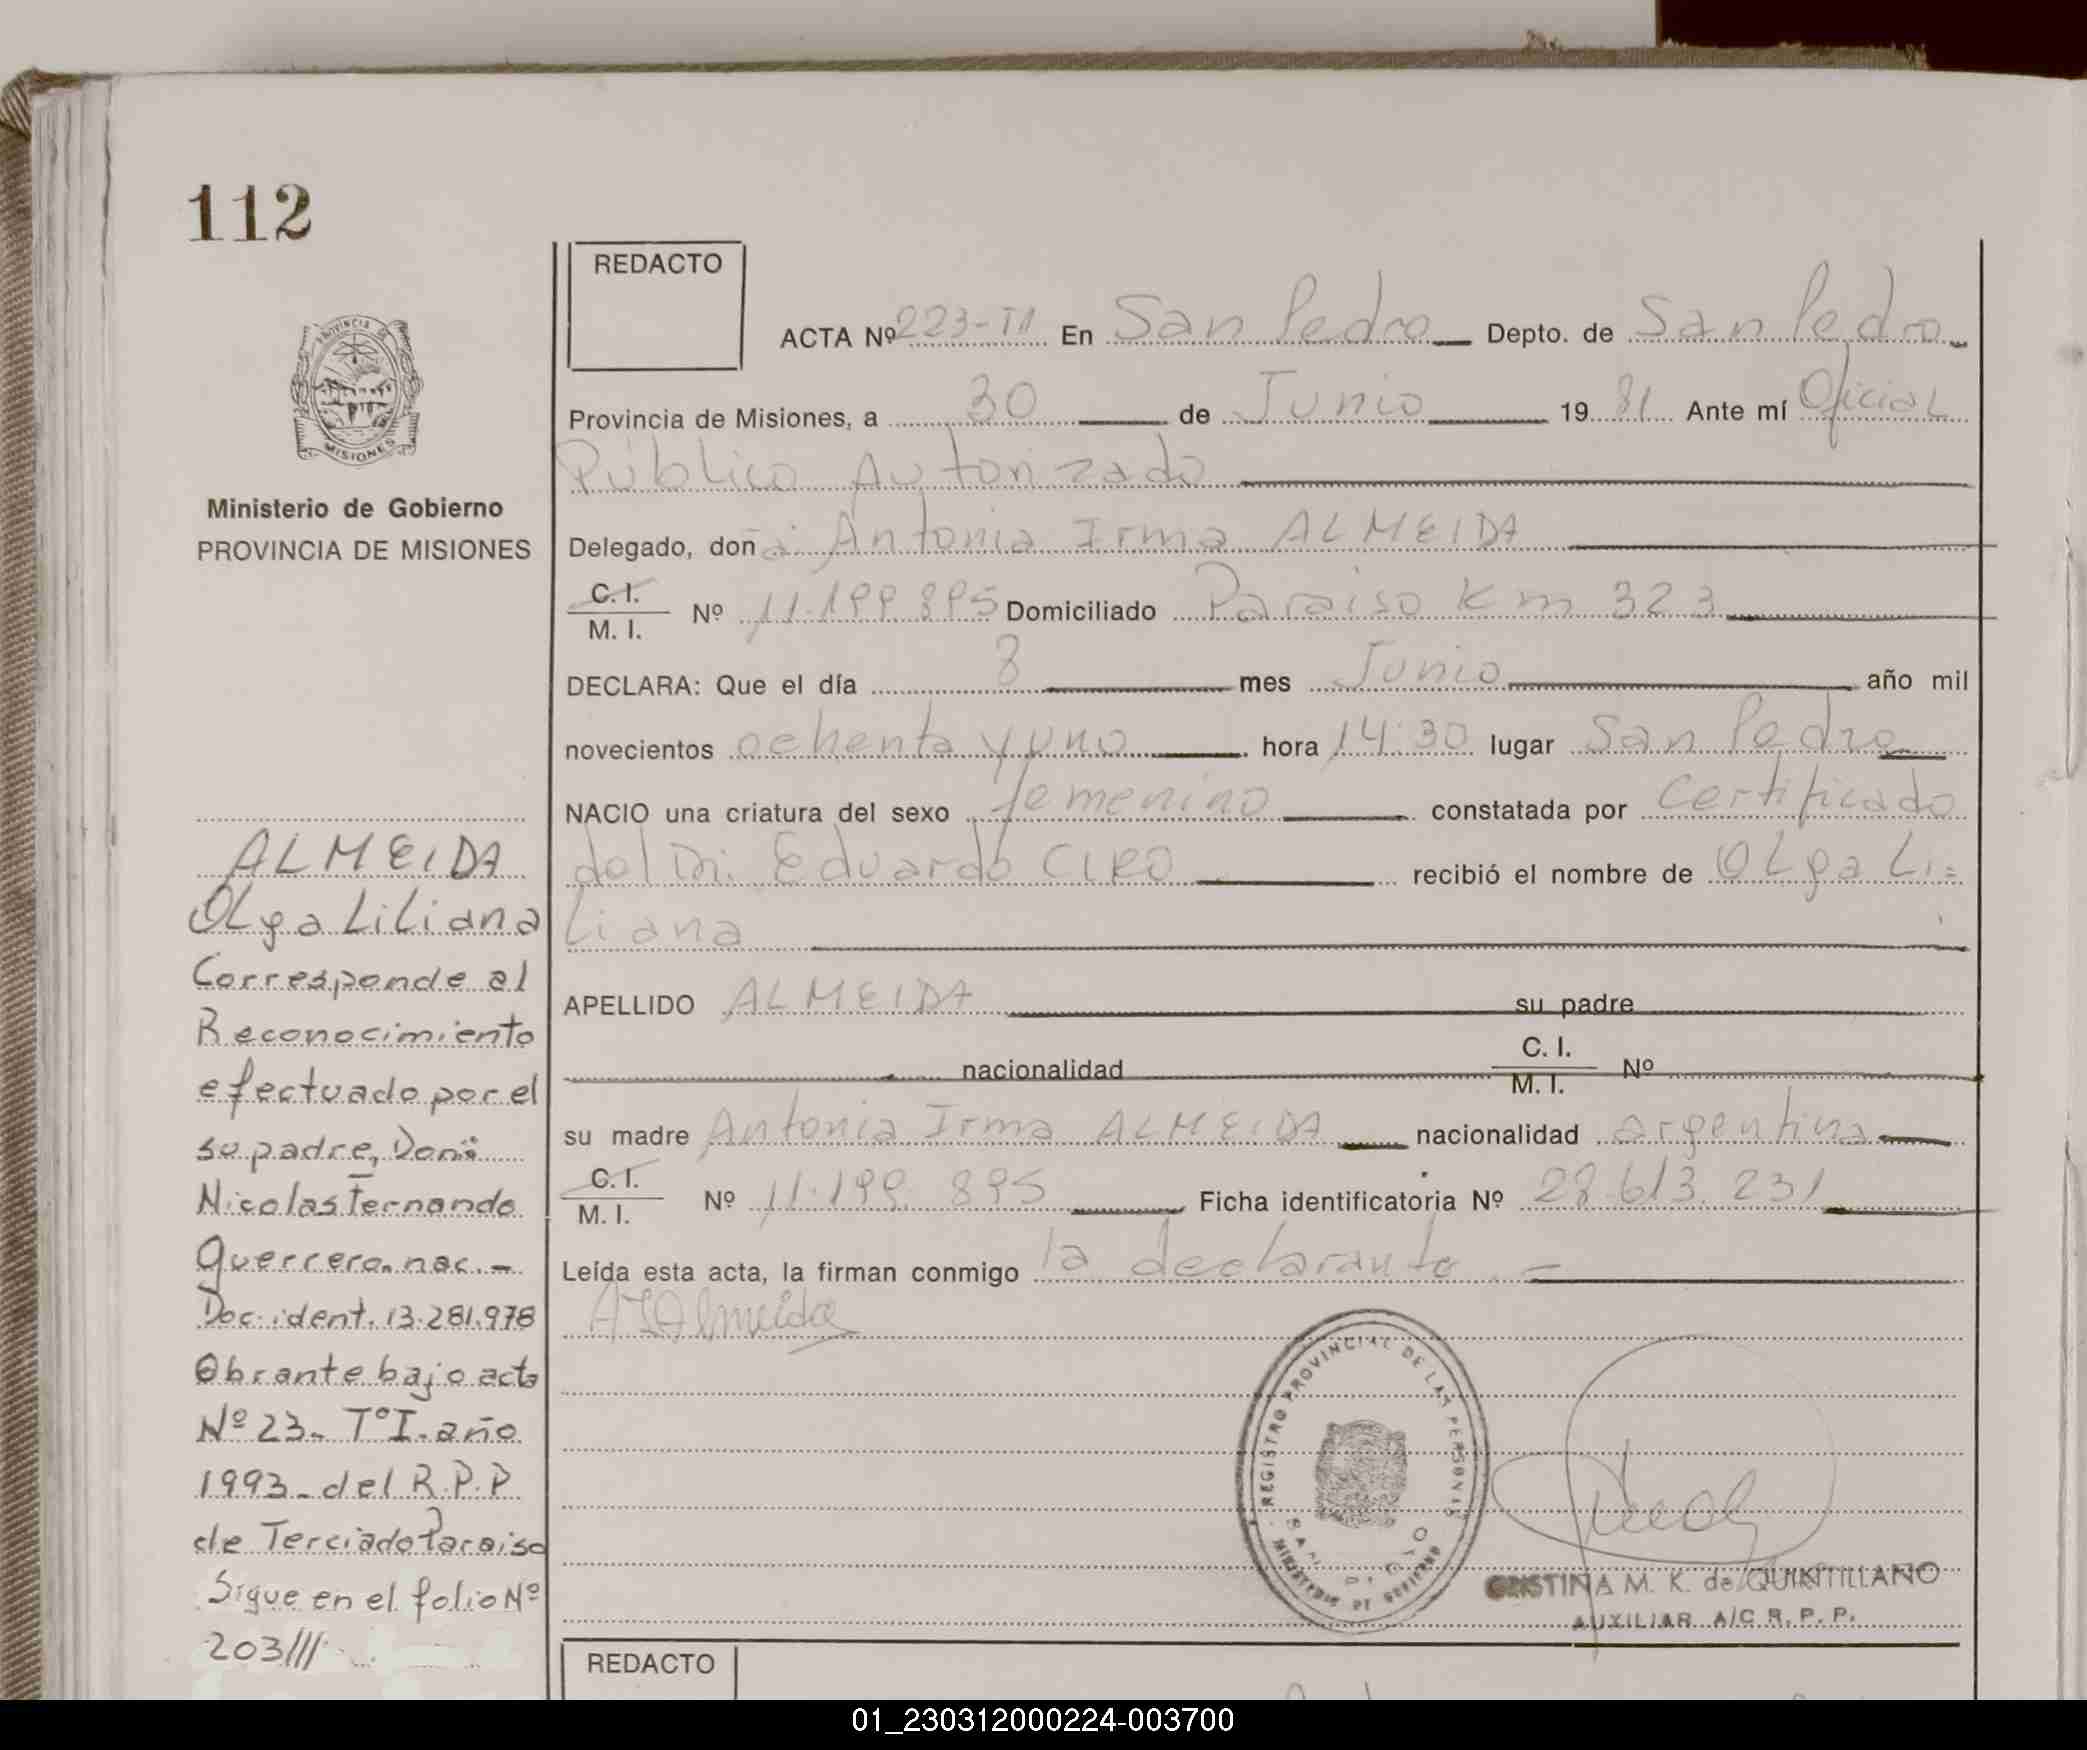 112
PROVINCIA DE
MISIONES
Ministerio de Gobierno
PROVINCIA DE MISIONES
ALMEIDA
Olga Liliana
Corresponde al
Reconocimiento
efectuado por el
su padre, Don:
Nicolas Fernando
Guerrero. nac.-
Doc. ident. 13.281.978
Obrante bajo acta
Nº 23- Tº I. año
1993- del R.P.P
de Terciado Paraiso
Sigue en el folio Nº
203///
REDACTO
ACTA Nº 223-TI En San Pedro Depto. de San Pedro
Provincia de Misiones, a 30 de Junio 19 81 Ante mí Oficial
Público Autorizado
Delegado, don a: Antonia Irma ALMEIDA
C. I.
M. I. Nº 11.199.895 Domiciliado Paraiso Km 323
DECLARA: Que el día 8 mes Junio año mil
novecientos ochenta y uno hora 14:30 lugar San Pedro
NACIO una criatura del sexo femenino constatada por Certificado
del Dr. Eduardo CIRO recibió el nombre de Olga Li=
liana
APELLIDO ALMEIDA su padre
nacionalidad C. I.
M. I. Nº
su madre Antonia Irma ALMEIDA nacionalidad argentina
C. I.
M. I. Nº 11.199.895 Ficha identificatoria Nº 28.613.231
Leída esta acta, la firman conmigo la declarante -
AIAlmeida
REGISTRO PROVINCIAL DE LAS PERSONAS
MINISTERIO DE GOBIERNO
CRISTINA M. K. de QUINTILLANO
AUXILIAR A/C R. P. P.
REDACTO
01_230312000224-003700